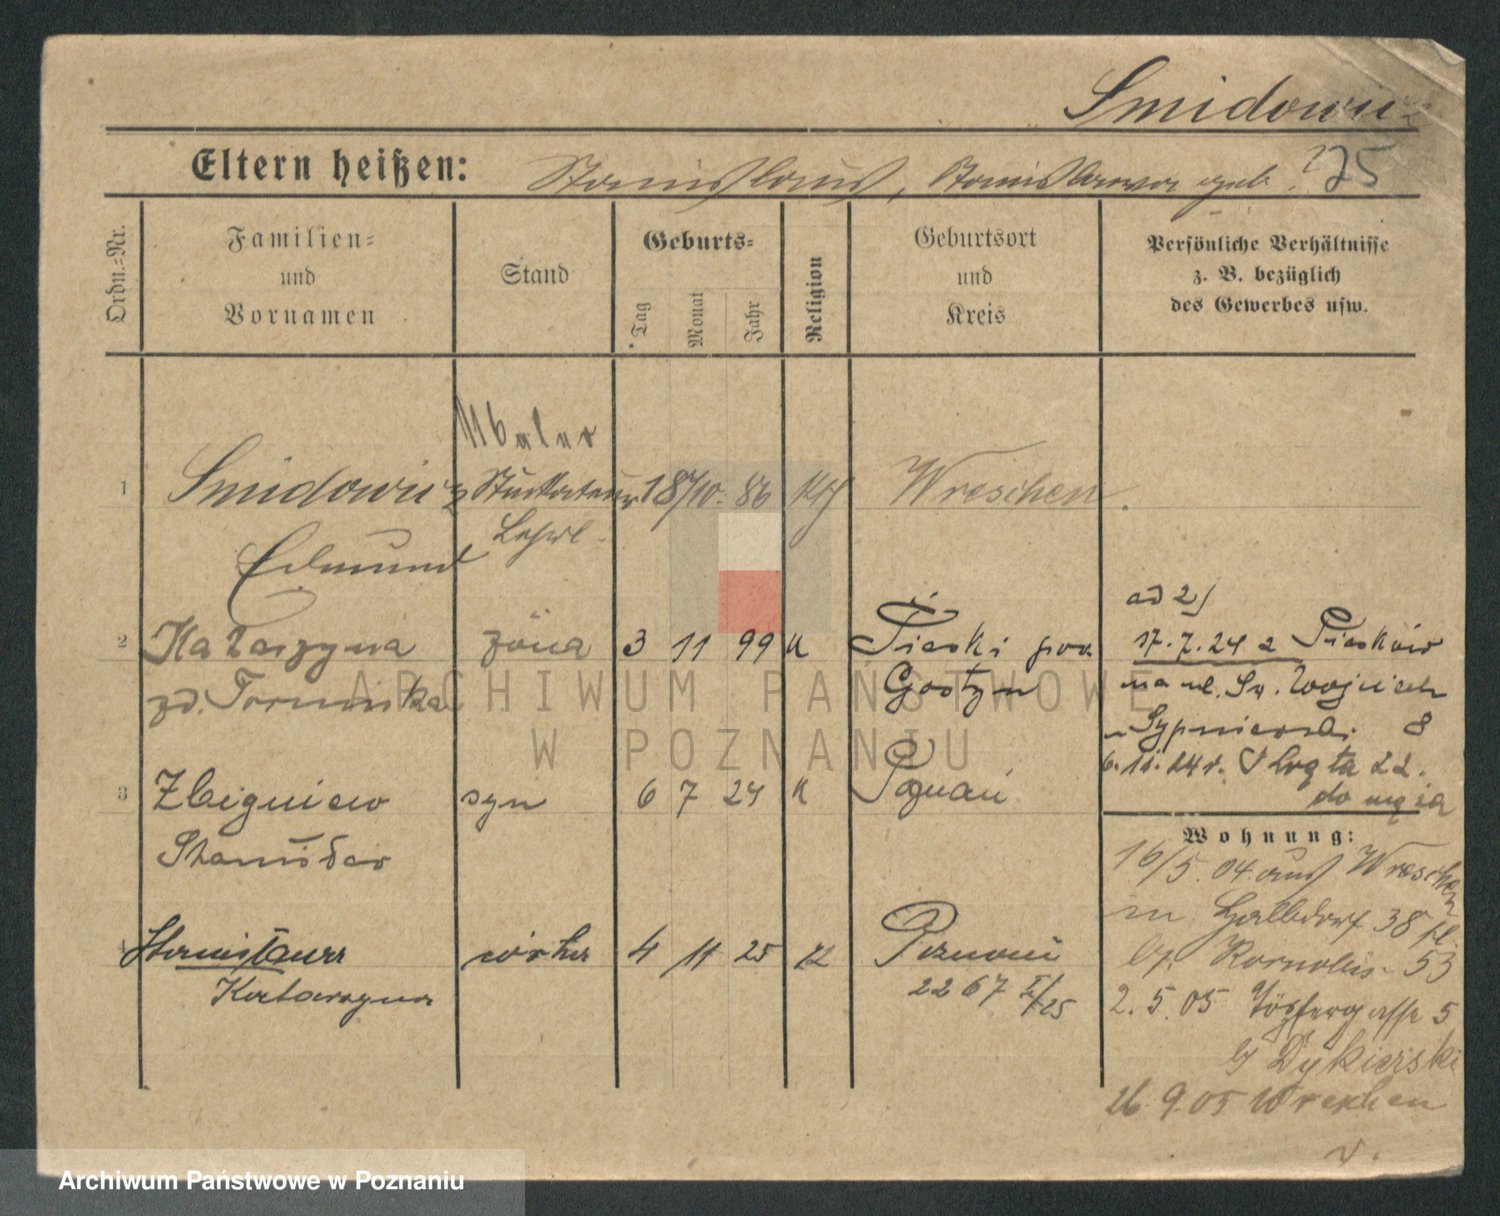 Smidowicz
Eltern heißen: Stanislaus, Stanislawa geb.
275
Ordn.=Nr.
Familien=
und
Vornamen
Stand
Geburts=
Tag
Monat
Jahr
Religion
Geburtsort
und
Kreis
Persönliche Verhältnisse
z. B. bezüglich
des Gewerbes usw.
Maler
1 Smidowicz Stuckateur 18/10. 86 kth Wreschen.
Lehrl.
Edmund
2 Katarzyna żona 3 11 99 K Pieski pow
zd. Tominska Gostyn
ad 2/
17.7.24 z Piesków
na ul. Św. Wojciech
Sypniewski 8
6.11.24 r.
do męża
3 Zbigniew syn 6 7 24 K Poznań
Stanisław
4 Stanisława córka 4 11 25 K Poznań
Katarzyna 2267
Wohnung:
16/5. 04. aus Wreschen
n. Halbdorf 38
b/. 53
2. 5. 05 Töpfergasse 5
b/ Dykierski
26. 9. 05 Wreschen
v.
ARCHIWUM PAŃSTWOWE
W POZNANIU
Archiwum Państwowe w Poznaniu